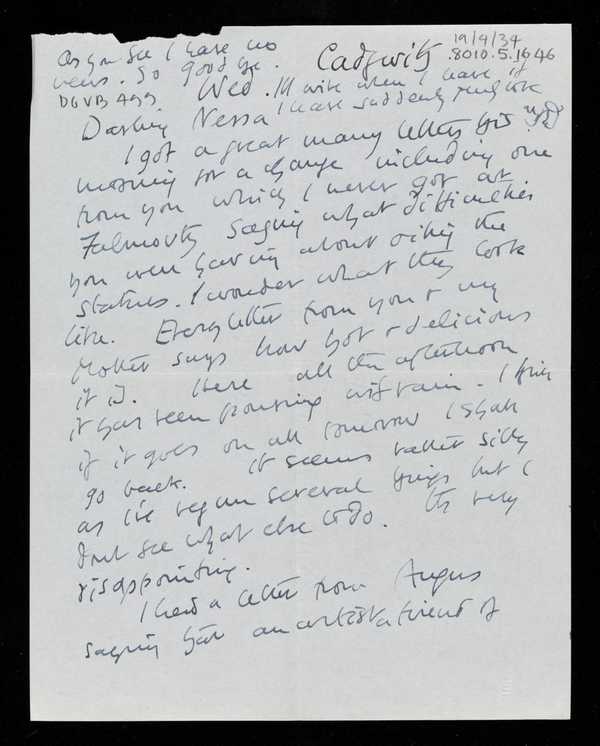 As you see I have no
news. So good bye.
DG VB Agg
19/9/34
8010.5.1646
Cadgwith
Wed. I'll wire when I leave if
I leave suddenly
Darling Nessa
I got a great many letters this
morning for a change including one
from you which I never got at
Falmouth saying what difficulties
you were having about oiling the
statues. I wonder what they look
like. Every letter from you & my
Mother says how hot & delicious
it is. Here all the afternoon
it has been pouring with rain. I think
if it goes on all tomorrow I shall
go back. It seems rather silly
as I've begun several things but I
dont see what else to do. Its very
disappointing.
I had a letter from Angus
saying that an artist a friend of